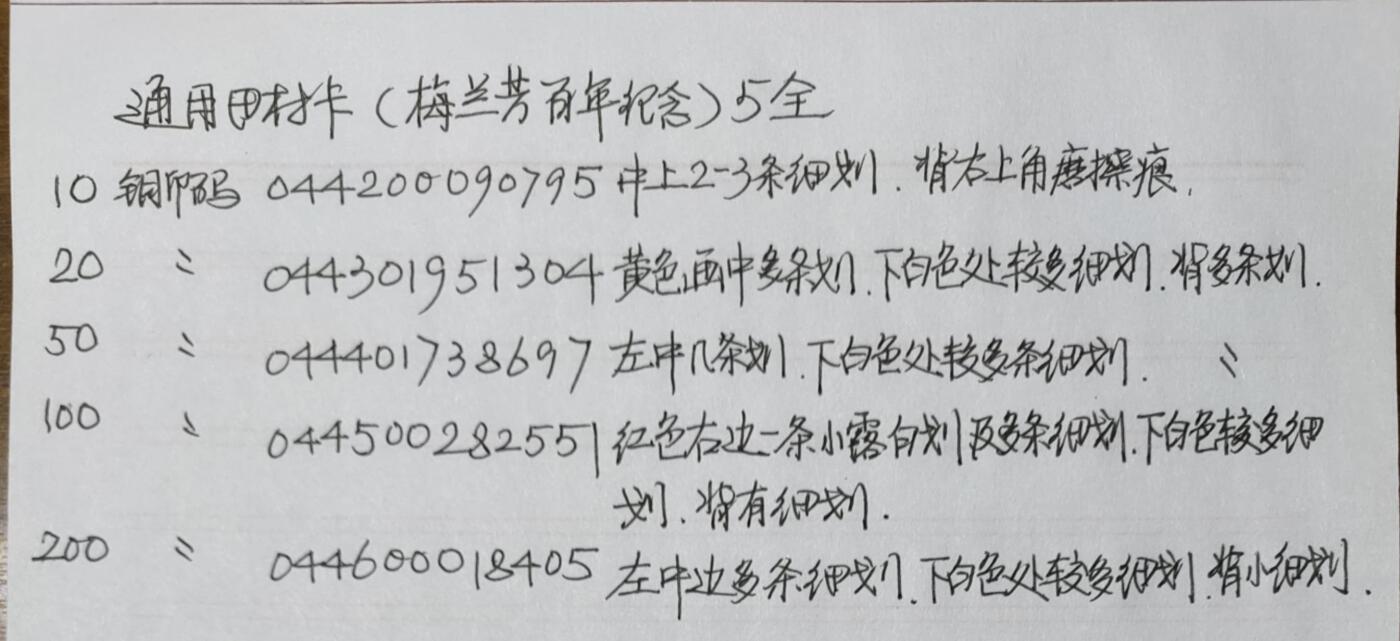 通用田村卡（梅兰芳百年纪念）5全
10 铜印码 044200090795 中上2-3条细划.背右上角磨擦痕.
20 〃 044301951304 黄色画中多条划.下白色处较多细划.背多条划.
50 〃 044401738697 左中几条划.下白色处较多条细划. 〃
100 〃 044500282551 红色右边一条小露白划及多条细划.下白色较多细
划.背有细划.
200 〃 044600018405 左中边多条细划.下白色处较多细划.背小细划.